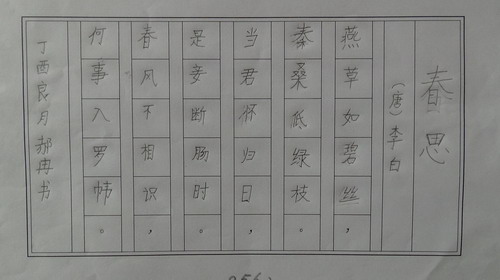 春思
(唐)李白
燕草如碧丝,
秦桑低绿枝。
当君怀归日,
是妾断肠时。
春风不相识,
何事入罗帏。
丁酉良月郝冉书